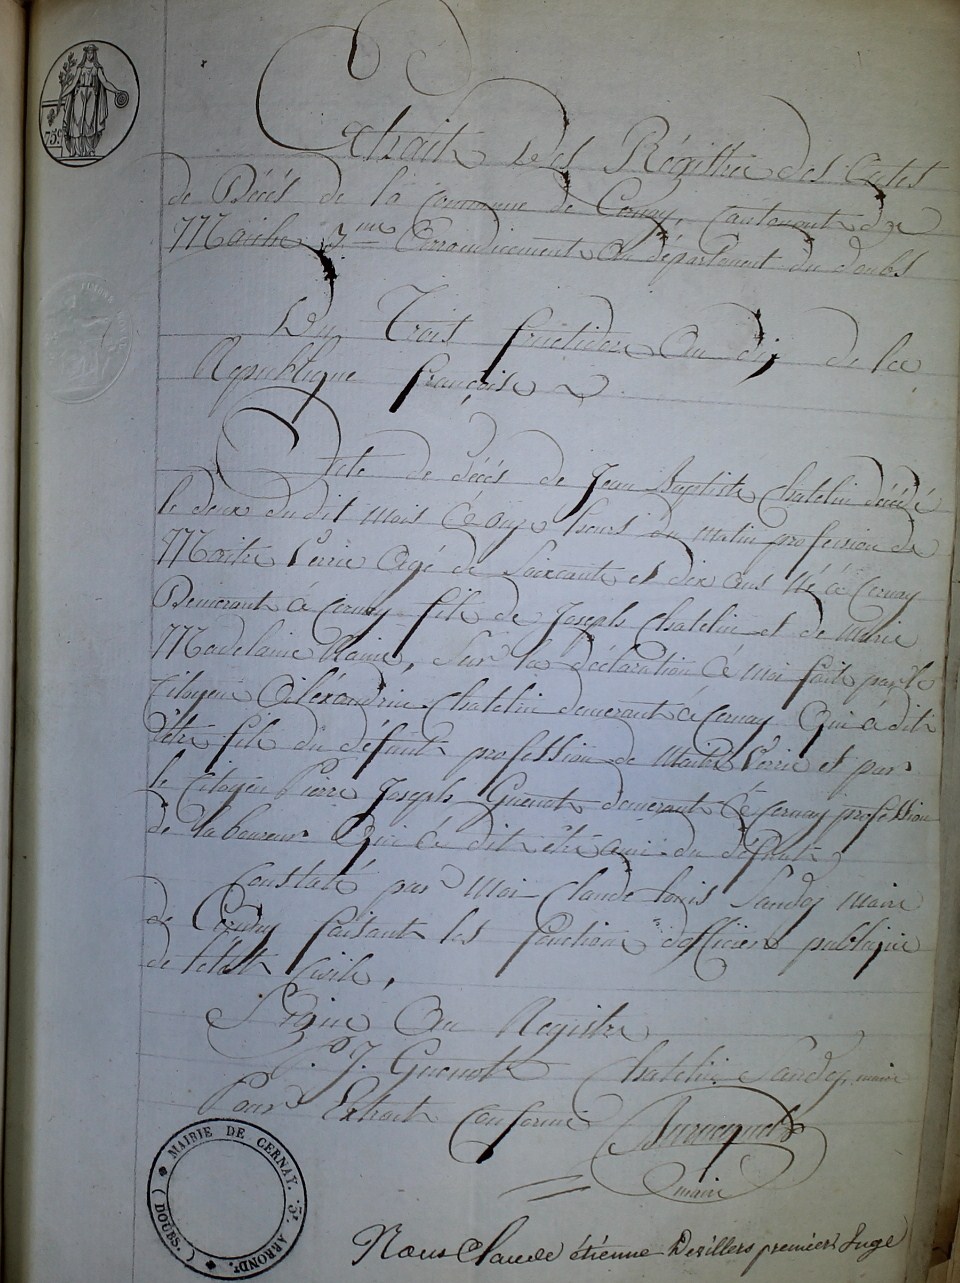 75c
Extrait des Régistre des Actes
de Décés de la Commune de Cernay, Cantonant de
Maiche 3me Arrondissement du département du doubs
Du Trois fructidor An dix de la
République française
Acte de décés de Jean Baptiste Chatelin décédé
le deux du dit mois à onze heures du matin profession de
Maitre Agé de Soixante et dix ans Né à Cernay
Demerant à Cernay fils de Joseph Chatelin et de Marie
Madelaine Sur la déclaration à moi fait par le
Citoyen Aléxandrin Chatelin demerant à Cernay Qui à dit
être fils du défunt profession de Maitre et par
le Citoyen Pierre Joseph Guenot demerant à Cernay profession
de laboureur Qui à dit être ami du défunt
Constaté par Moi Claude Louis Sandoz Maire
de Cernay faisant les fonctions d'officier publique
de l'état Civile,
Signé Au Registre
P. J. Guenot Chatelin Sandoz maire
Pour Extrait Conforme
maire
MAIRIE DE CERNAY. 3e ARRONDt. (DOUBS.)
Nous Claude étienne Dezillers premier Juge